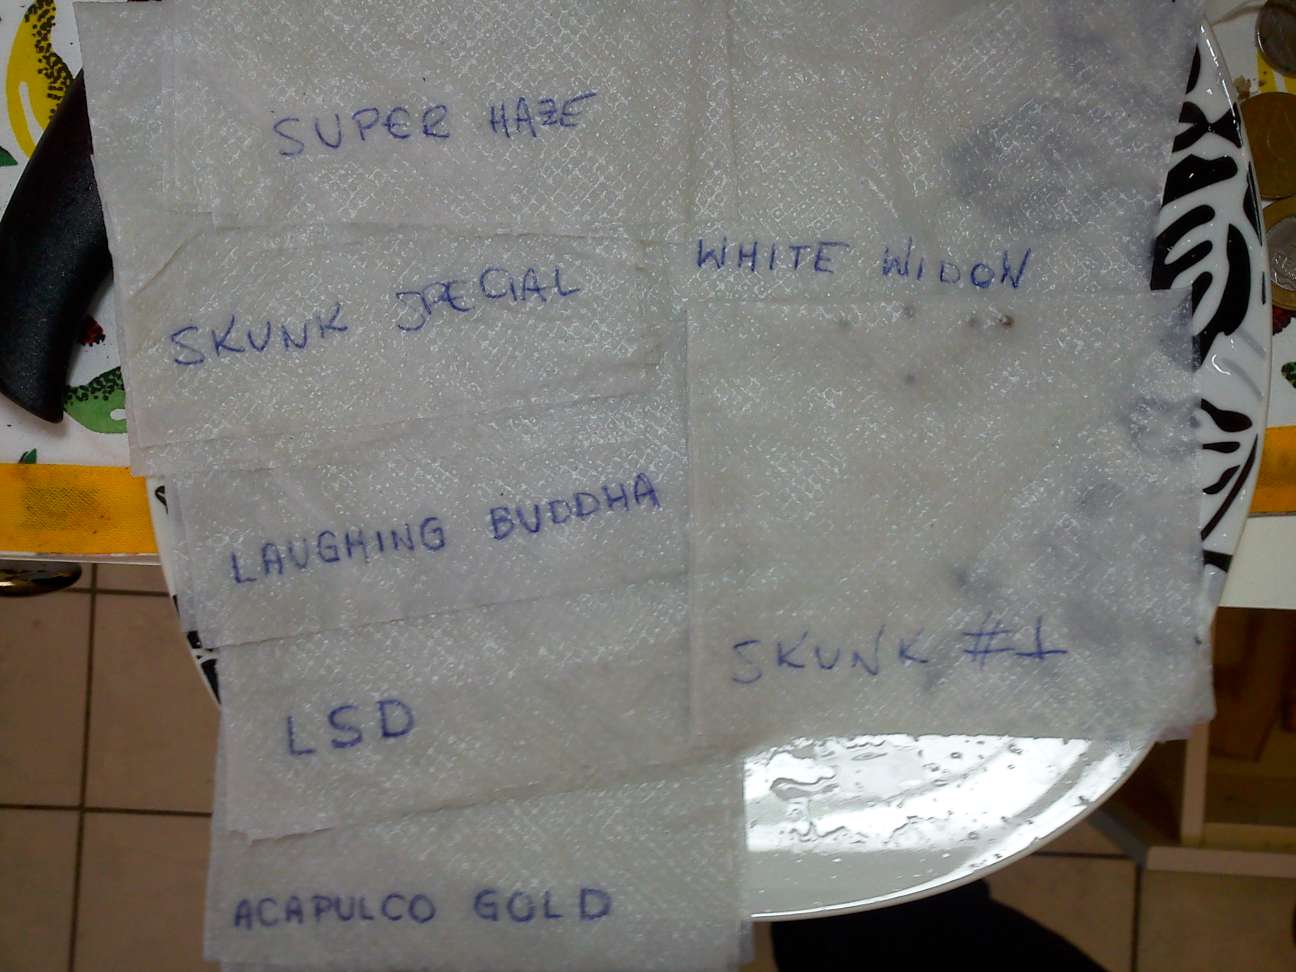 SUPER HAZE
WHITE WIDOW
SKUNK SPECIAL
LAUGHING BUDDHA
SKUNK #1
LSD
ACAPULCO GOLD